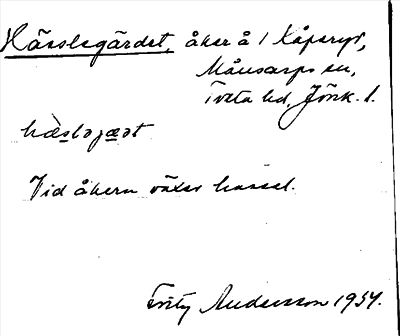 Hässlegärdet, åker å 1 Kåperyd,
Månsarps sn,
Tveta hd, Jönk. l.
hæsləjæət
Vid åkern växer hassel.
Fritz Andersson 1934.